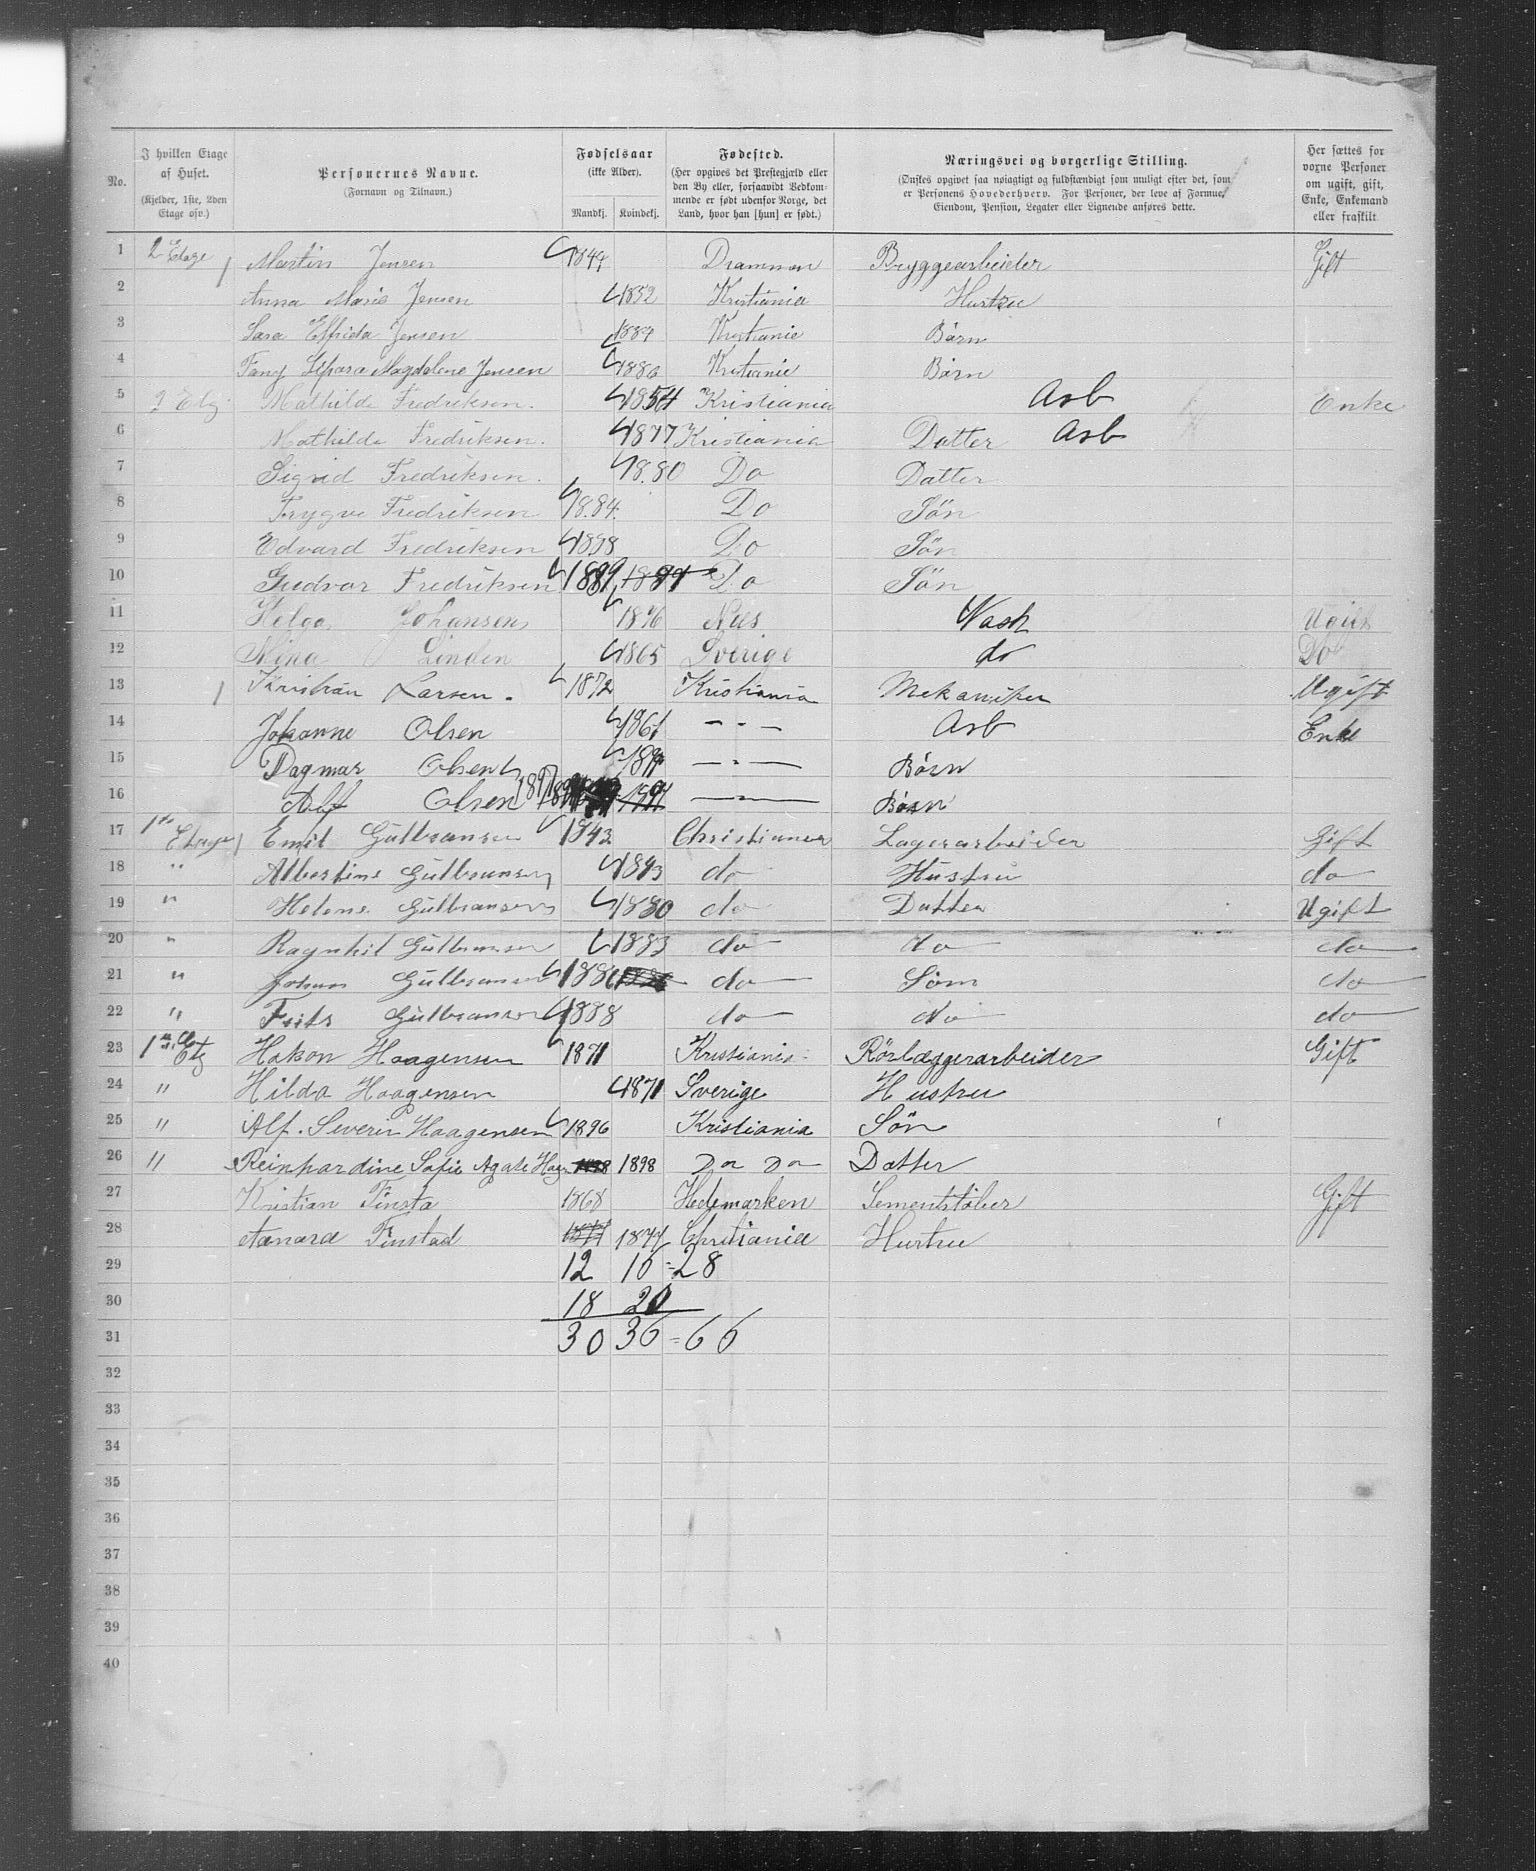 No.
I hvilken Etage af Huset. (Kjelder, 1ste, 2den Etage osv.)
Personernes Navne. (Fornavn og Tilnavn.)
Fødselsaar (ikke Alder). Mandkj. Kvindekj.
Fødested. (Her opgives det Prestegjæld eller den By eller, forsaavidt Vedkommende er født udenfor Norge, det Land, hvor han [hun] er født.)
Næringsvei og borgerlige Stilling. (Ønskes opgivet saa nøiagtigt og fuldstændigt som muligt efter det, som er Personens Hovederhverv. For Personer, der leve af Formue, Eiendom, Pension, Legater eller Lignende anføres dette.)
Her sættes for voxne Personer om ugift, gift, Enke, Enkemand eller fraskilt
1 2 Etage Martin Jensen Drammen Bryggearbeider Gift
2 Anna Marie Jensen 1852 Kristiania Hustru
3 Sara Elfrida Jensen 1884 Kristiania Børn
4 Fany Magdalene Jensen 1886 Kristiania Børn
5 2 Etg. Mathilde Fredriksen. 1854 Kristiania Arb Enke
6 Mathilde Fredriksen. 1877 Kristiania Datter Arb
7 Sigrid Fredriksen. 1880 Do Datter
8 Trygve Fredriksen 1884. Do Sön
9 Edvard Fredriksen Do Sön
10 Gudvar Fredriksen 1889 Do Sön
11 Helga Johansen 1876 Næs Vask Ugift
12 Mina Linden 1865 Sverige do Do
13 Kristian Larsen. 1872 Kristiania Mekaniker Ugift
14 Johanne Olsen 1861 - " - Arb Enke
15 Dagmar Olsen - " - Børn
16 Alf Olsen 1897 - " - Børn
17 1ste Etage Emil Gulbransen 1843 Christiania Lagerarbeider Gift
18 " Albertine Gulbransen 1843 do Hustru do
19 " Helene Gulbransen 1880 do Datter Ugift
20 " Ragnhil Gulbransen 1883 do do do
21 " Johan Gulbransen 1886 do Søn do
22 " Frits Gulbransen 1888 do do do
23 1ste Etg Hakon Haagensen 1871 Kristiania Rörlæggerarbeider Gift
24 " Hilda Haagensen 1871 Sverige Hustru
25 " Alf. Severin Haagensen 1896 Kristiania Sön
26 " Reinhardine Sofie Agate Haag 1898 Do Do Datter
27 Kristian Finsta 1868 Hedemarken Sementstøber Gift
28 Finstad 1877 Christiania Hustru
29 12 16 = 28
30 18 20
31 30 36 = 66
32
33
34
35
36
37
38
39
40